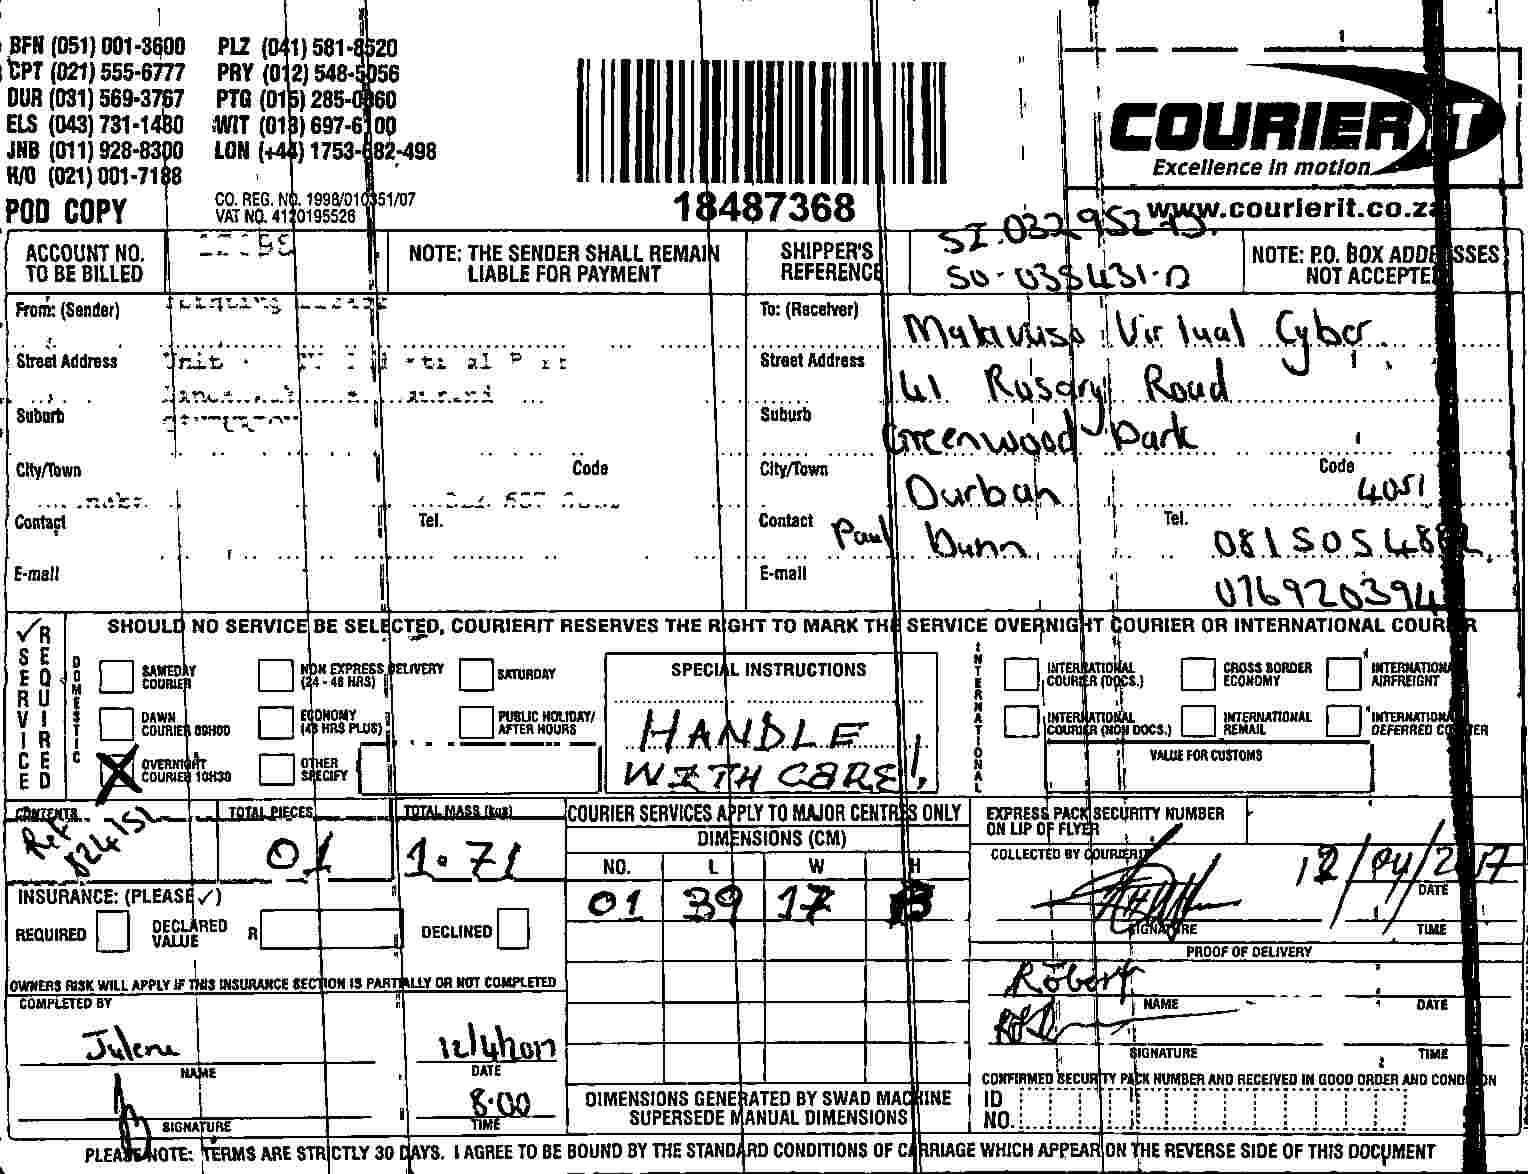 BFN (051) 001-3600 PLZ (041) 581-8520
CPT (021) 555-6777 PRY (012) 548-5056
DUR (031) 569-3767 PTG (015) 285-0860
ELS (043) 731-1480 WIT (013) 697-6100
JNB (011) 928-8300 LON (+44) 1753-682-498
H/O (021) 001-7188
POD COPY
CO. REG. NO. 1998/010351/07
VAT NO. 4120195526
18487368
COURIER IT
Excellence in motion
www.courierit.co.za
ACCOUNT NO.
TO BE BILLED
NOTE: THE SENDER SHALL REMAIN
LIABLE FOR PAYMENT
SHIPPER'S
REFERENCE
SO-035431-D
NOTE: P.O. BOX ADDRESSES
NOT ACCEPTED
From: (Sender)
Street Address
Suburb
City/Town Code
Contact Tel.
E-mail
To: (Receiver) Virtual Cyber
Street Address 41 Rosary Road
Suburb Greenwood Park
City/Town Durban Code 4051
Contact Paul Dunn Tel. 081505488
E-mail 076920394
SERVICE REQUIRED
SHOULD NO SERVICE BE SELECTED, COURIERIT RESERVES THE RIGHT TO MARK THE SERVICE OVERNIGHT COURIER OR INTERNATIONAL COURIER
DOMESTIC
SAMEDAY
COURIER
NON EXPRESS DELIVERY
(24 - 48 HRS)
SATURDAY
DAWN
COURIER 09H00
ECONOMY
(48 HRS PLUS)
PUBLIC HOLIDAY/
AFTER HOURS
OVERNIGHT
COURIER 10H30
OTHER
SPECIFY
SPECIAL INSTRUCTIONS
HANDLE
WITH CARE!
INTERNATIONAL
INTERNATIONAL
COURIER (DOCS.)
CROSS BORDER
ECONOMY
INTERNATIONAL
AIRFREIGHT
INTERNATIONAL
COURIER (NON DOCS.)
INTERNATIONAL
REMAIL
INTERNATIONAL
DEFERRED COURIER
VALUE FOR CUSTOMS
CONTENTS
Ref
824151
TOTAL PIECES
01
TOTAL MASS (kgs)
1.71
COURIER SERVICES APPLY TO MAJOR CENTRES ONLY
DIMENSIONS (CM)
NO. L W H
01 39 17 13
EXPRESS PACK SECURITY NUMBER
ON LIP OF FLYER
COLLECTED BY COURIERIT
12/04/2017
DATE
SIGNATURE TIME
INSURANCE: (PLEASE ✓)
REQUIRED DECLARED
VALUE R DECLINED
OWNERS RISK WILL APPLY IF THIS INSURANCE SECTION IS PARTIALLY OR NOT COMPLETED
PROOF OF DELIVERY
Robert
NAME DATE
SIGNATURE TIME
COMPLETED BY
Julene 12/4/2017
NAME DATE
8:00
SIGNATURE TIME
DIMENSIONS GENERATED BY SWAD MACHINE
SUPERSEDE MANUAL DIMENSIONS
CONFIRMED SECURITY PACK NUMBER AND RECEIVED IN GOOD ORDER AND CONDITION
ID
NO.
PLEASE NOTE: TERMS ARE STRICTLY 30 DAYS. I AGREE TO BE BOUND BY THE STANDARD CONDITIONS OF CARRIAGE WHICH APPEAR ON THE REVERSE SIDE OF THIS DOCUMENT